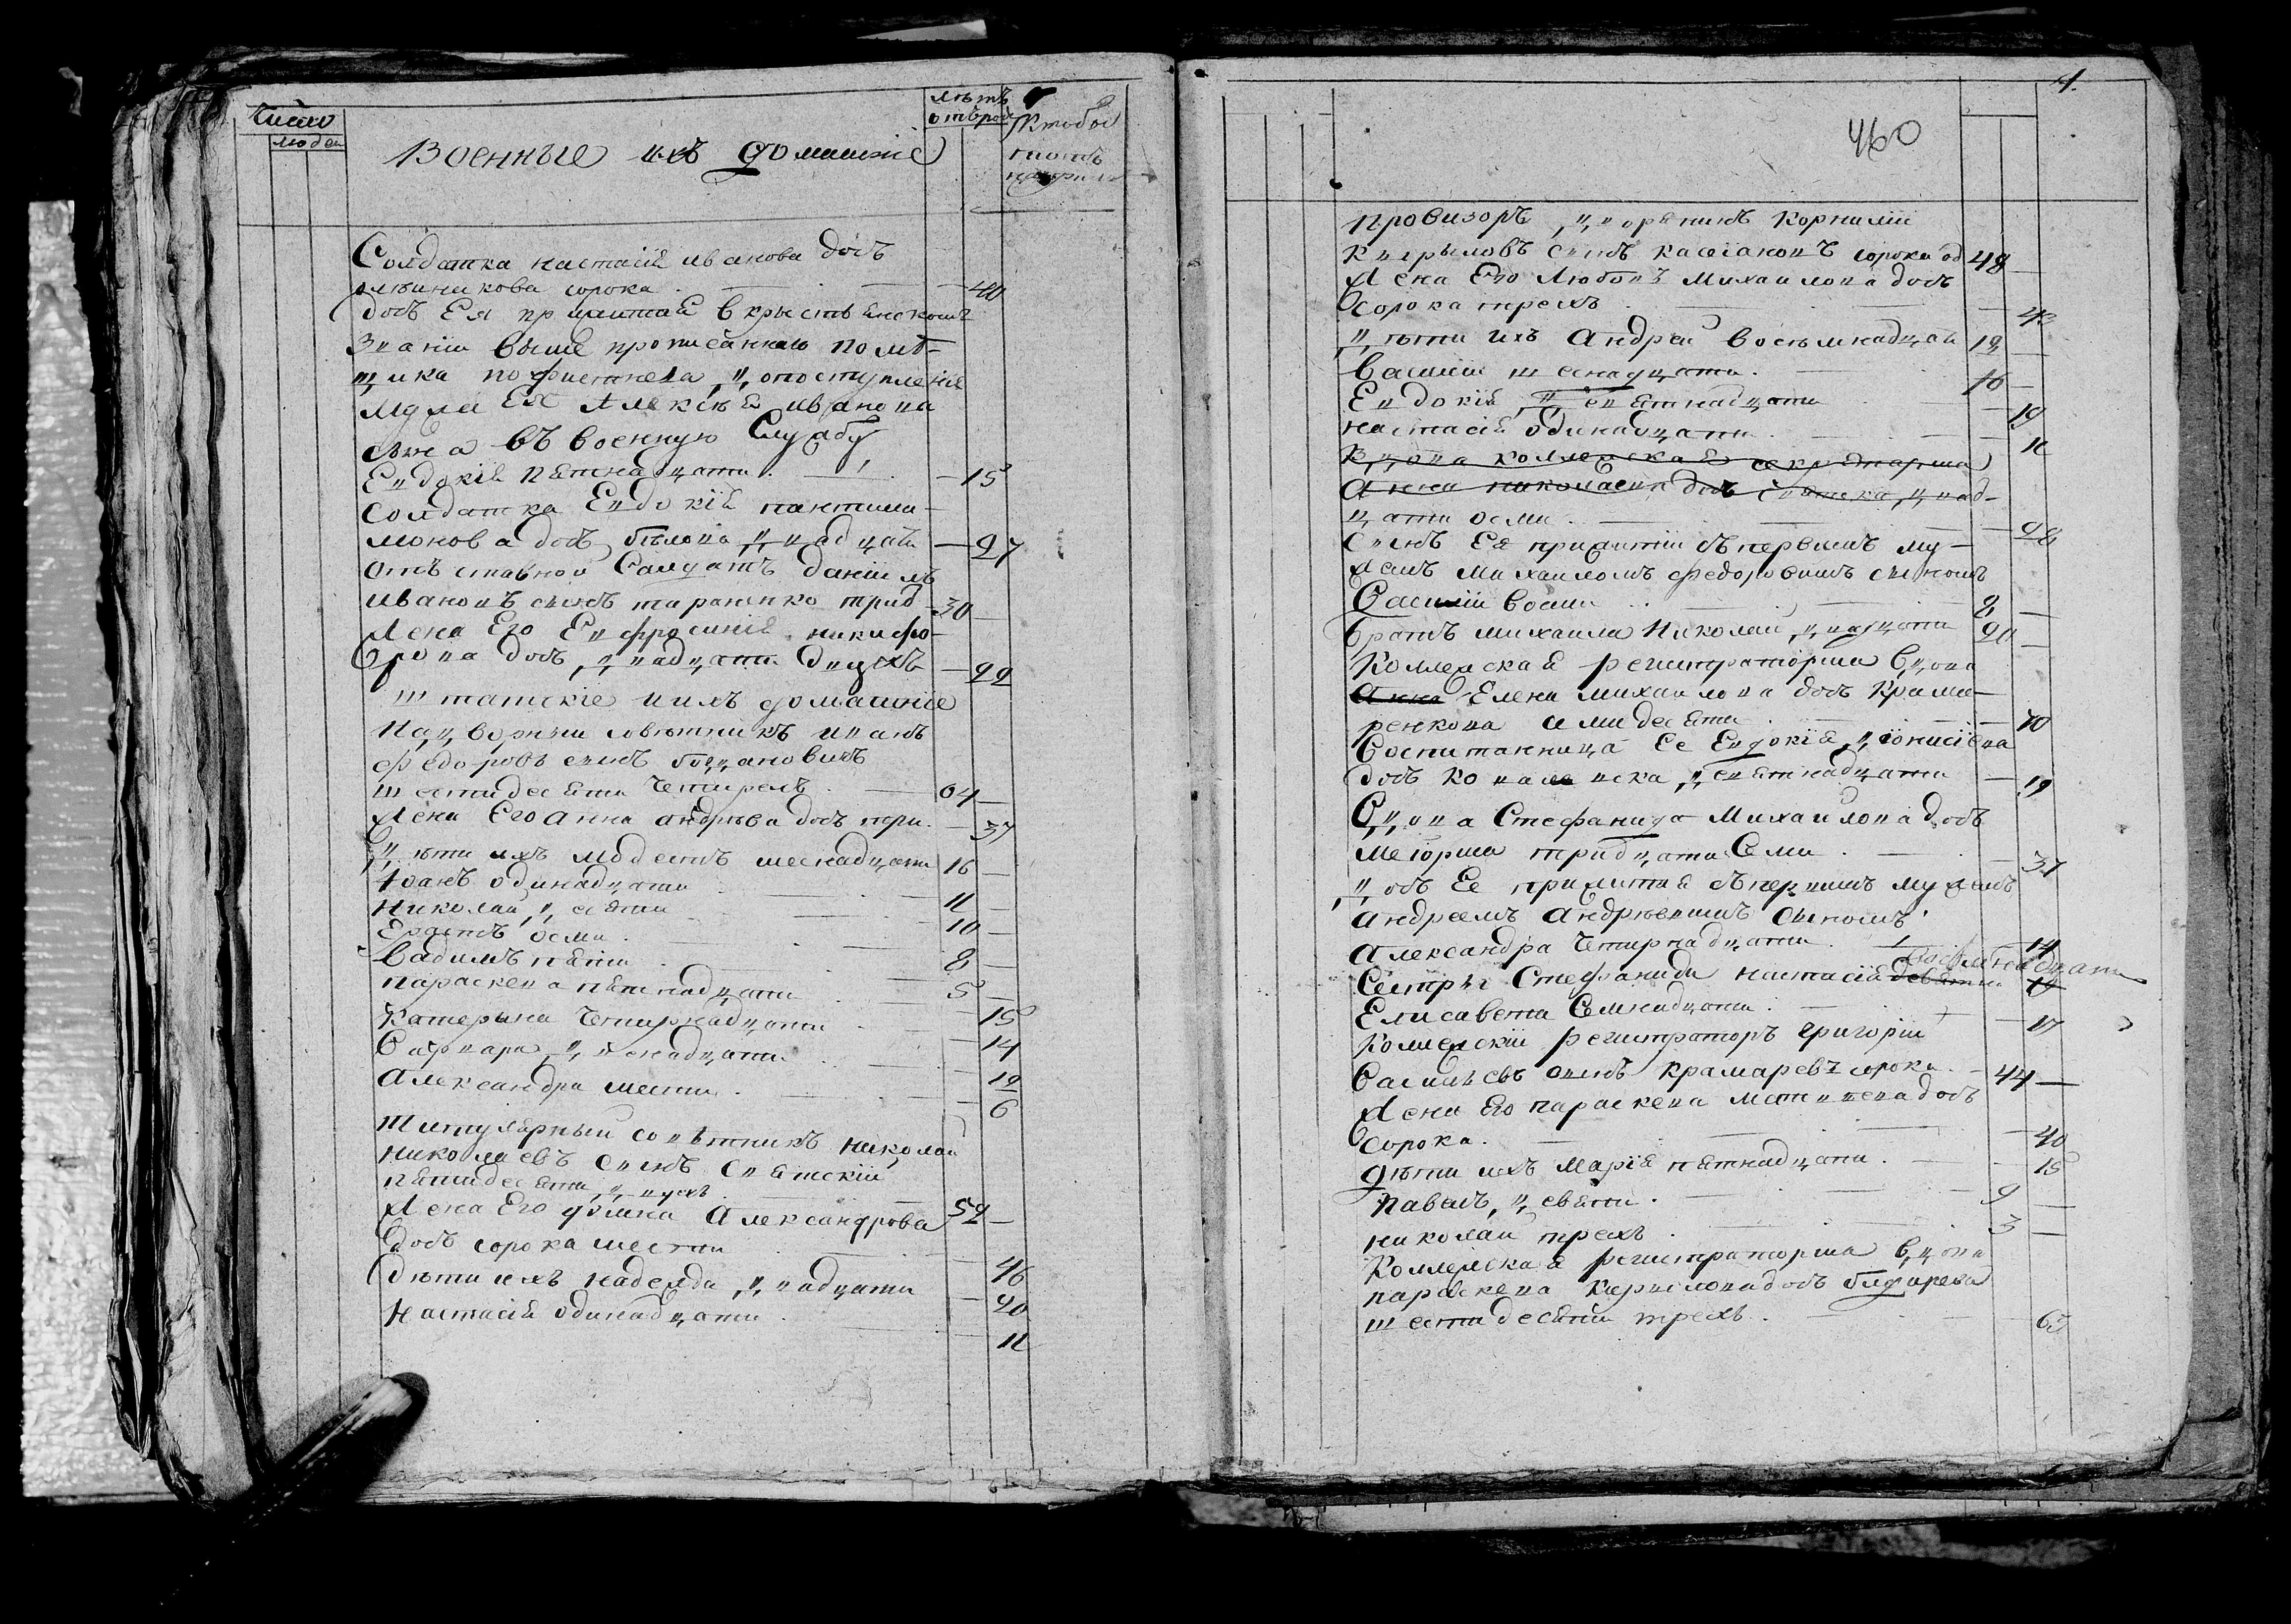 Число
людей
Военные ихъ домашніе
лѣтъ
отъ рода
Солдатка настасіѧ иванова дочь
сорока 40
дочь Еѧ прижитаѧ в крыстьѧнскомъ
званіи выше прописанного помѣ-
щика поступленіѧ
мужа Еѧ Алексѣѧ иванова
сына въ военную Службу
Евдокіѧ пѧтнадцати 15
солдатка Евдокіѧ пантили-
монова дочь бѣлова двадцати 27
отъставной Салдатъ даніилъ
ивановъ сынъ тараненко трид 30
Жена Его Евфросиніѧ никифо-
рова дочь двадцати двухъ 22
штатскіе иихъ домашніе
надворный совѣтникъ иванъ
федоровъ сынъ богдановичъ
шестидесѧти Четырехъ 64
Жена Его Анна андрѣева дочь 37
дѣти ихъ модестъ шеснадцати 16
Іоанъ одинадцати 11
николай десѧти 10
Ерастъ осми 8
Вадимъ пѧти 5
параскева пѧтнадцати 15
катерына Четырнадцати 14
Варвара двенадцати 12
Александра шести 6
титулѧрный совѣтникъ николай
николаевъ сынъ свѧтскій
пѧтидесѧти двухъ 52
Жена Его домна Александрова
дочь сорока шести 46
дѣти ихъ надежда двадцати 20
настасіѧ одинадцати 11
4.
460
провизоръ дворѧнинъ корнилій
кирыловъ сынъ касіановъ сорока 48
Жена Его Любовъ михаилова дочь
сорока трехъ 43
дѣти ихъ андрей восѣмнадцати 18
василій шеснадцати 16
Евдокіѧ девѧтнадцати 19
настасіѧ одинадцати 11
вдова коллежскаѧ секретарша
Анна николаева дочь свѧтска двад-
цати осми 28
сынъ Еѧ прижитій съпервымъ му-
жемъ михаиломъ федоровымъ сыномъ
Василій восми 8
братъ михаила николай двадцати 20
коллежскаѧ регистраторша вдова
Анна Елена михаилова дочь крама-
ренкова семидесѧти 70
воспитанница Ее Евдокіѧ діонисіева
дочь девѧтнадцати 19
Вдова Стефанида михаилова дочь
меіорша тридцати Семи 37
дочь Ее прижитаѧ съпервымъ мужемъ
андреемъ андрѣевымъ сыномъ
Александра Четырнадцати 14
восемнадцати
сестры Стефаниды настасіѧ 19
Елисавета Семнадцати 17
коллежскій регистраторъ григорій
василіевъ сынъ крамаревъ сорока 44
Жена Его параскева матвѣева дочь
сорока 40
дѣти ихъ маріѧ пѧтнадцати 15
павелъ девѧти 9
николай трехъ 3
коллежскаѧ регистраторша вдова
параскева кирилова дочь
шестидесѧти трехъ 63